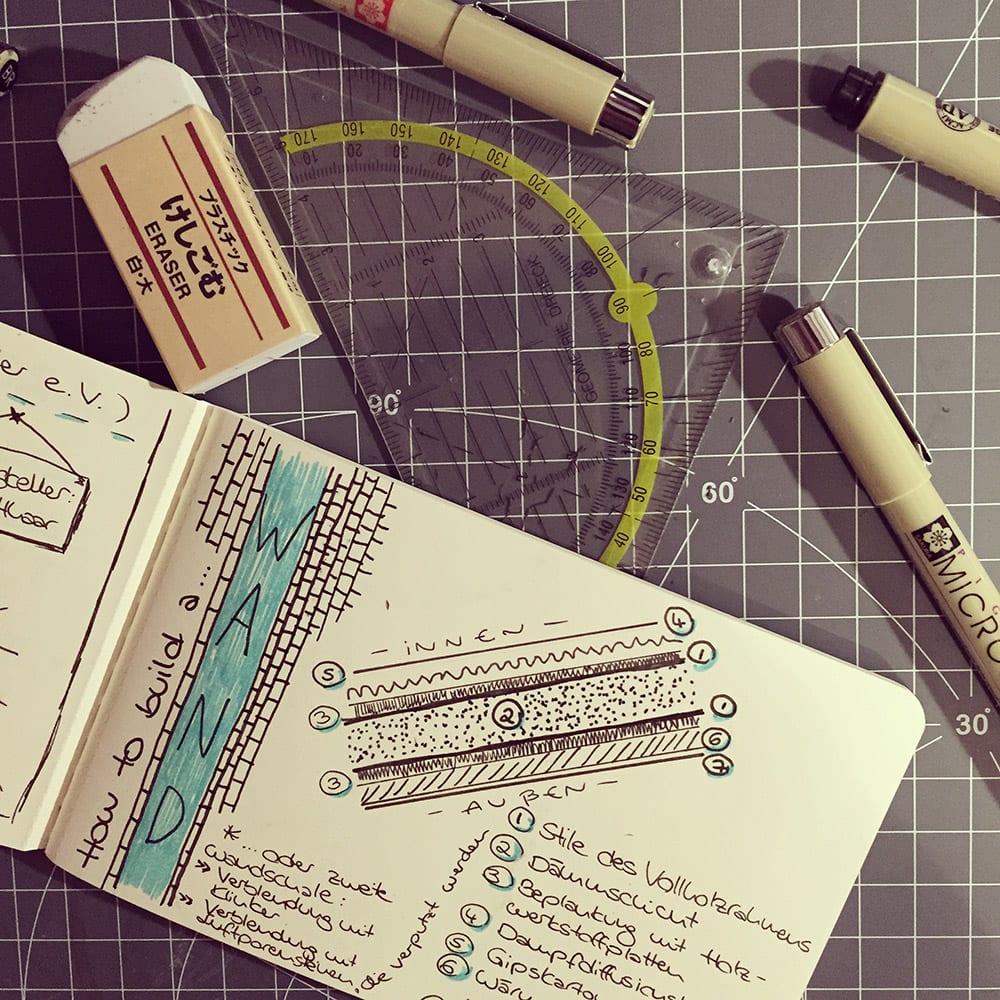 プラスチック
けしごむ
ERASER
白・大
170 160 150 140 130 120 110 100 90 80 70 60 50 40
10 20 30 40 50 60
80
100
120 130 140
GEOMETRIE DREIECK
90°
60°
30°
MICRO
er e.V.)
steller:
How to build a...
WAND
- INNEN -
4
5
1
3
2
1
6
3
7
- AUßEN -
* ... oder zweite
Wandschale:
» Verblendung mit
Klinker
» Verblendung mit
Luftporensteinen, die verputzt werden
1 Stile des Vollholzrahmens
2 Dämmschicht
3 Beplankung mit Holz-
werkstoffplatten
4 Dampfdiffusions
5 Gipskarton
6 Wär